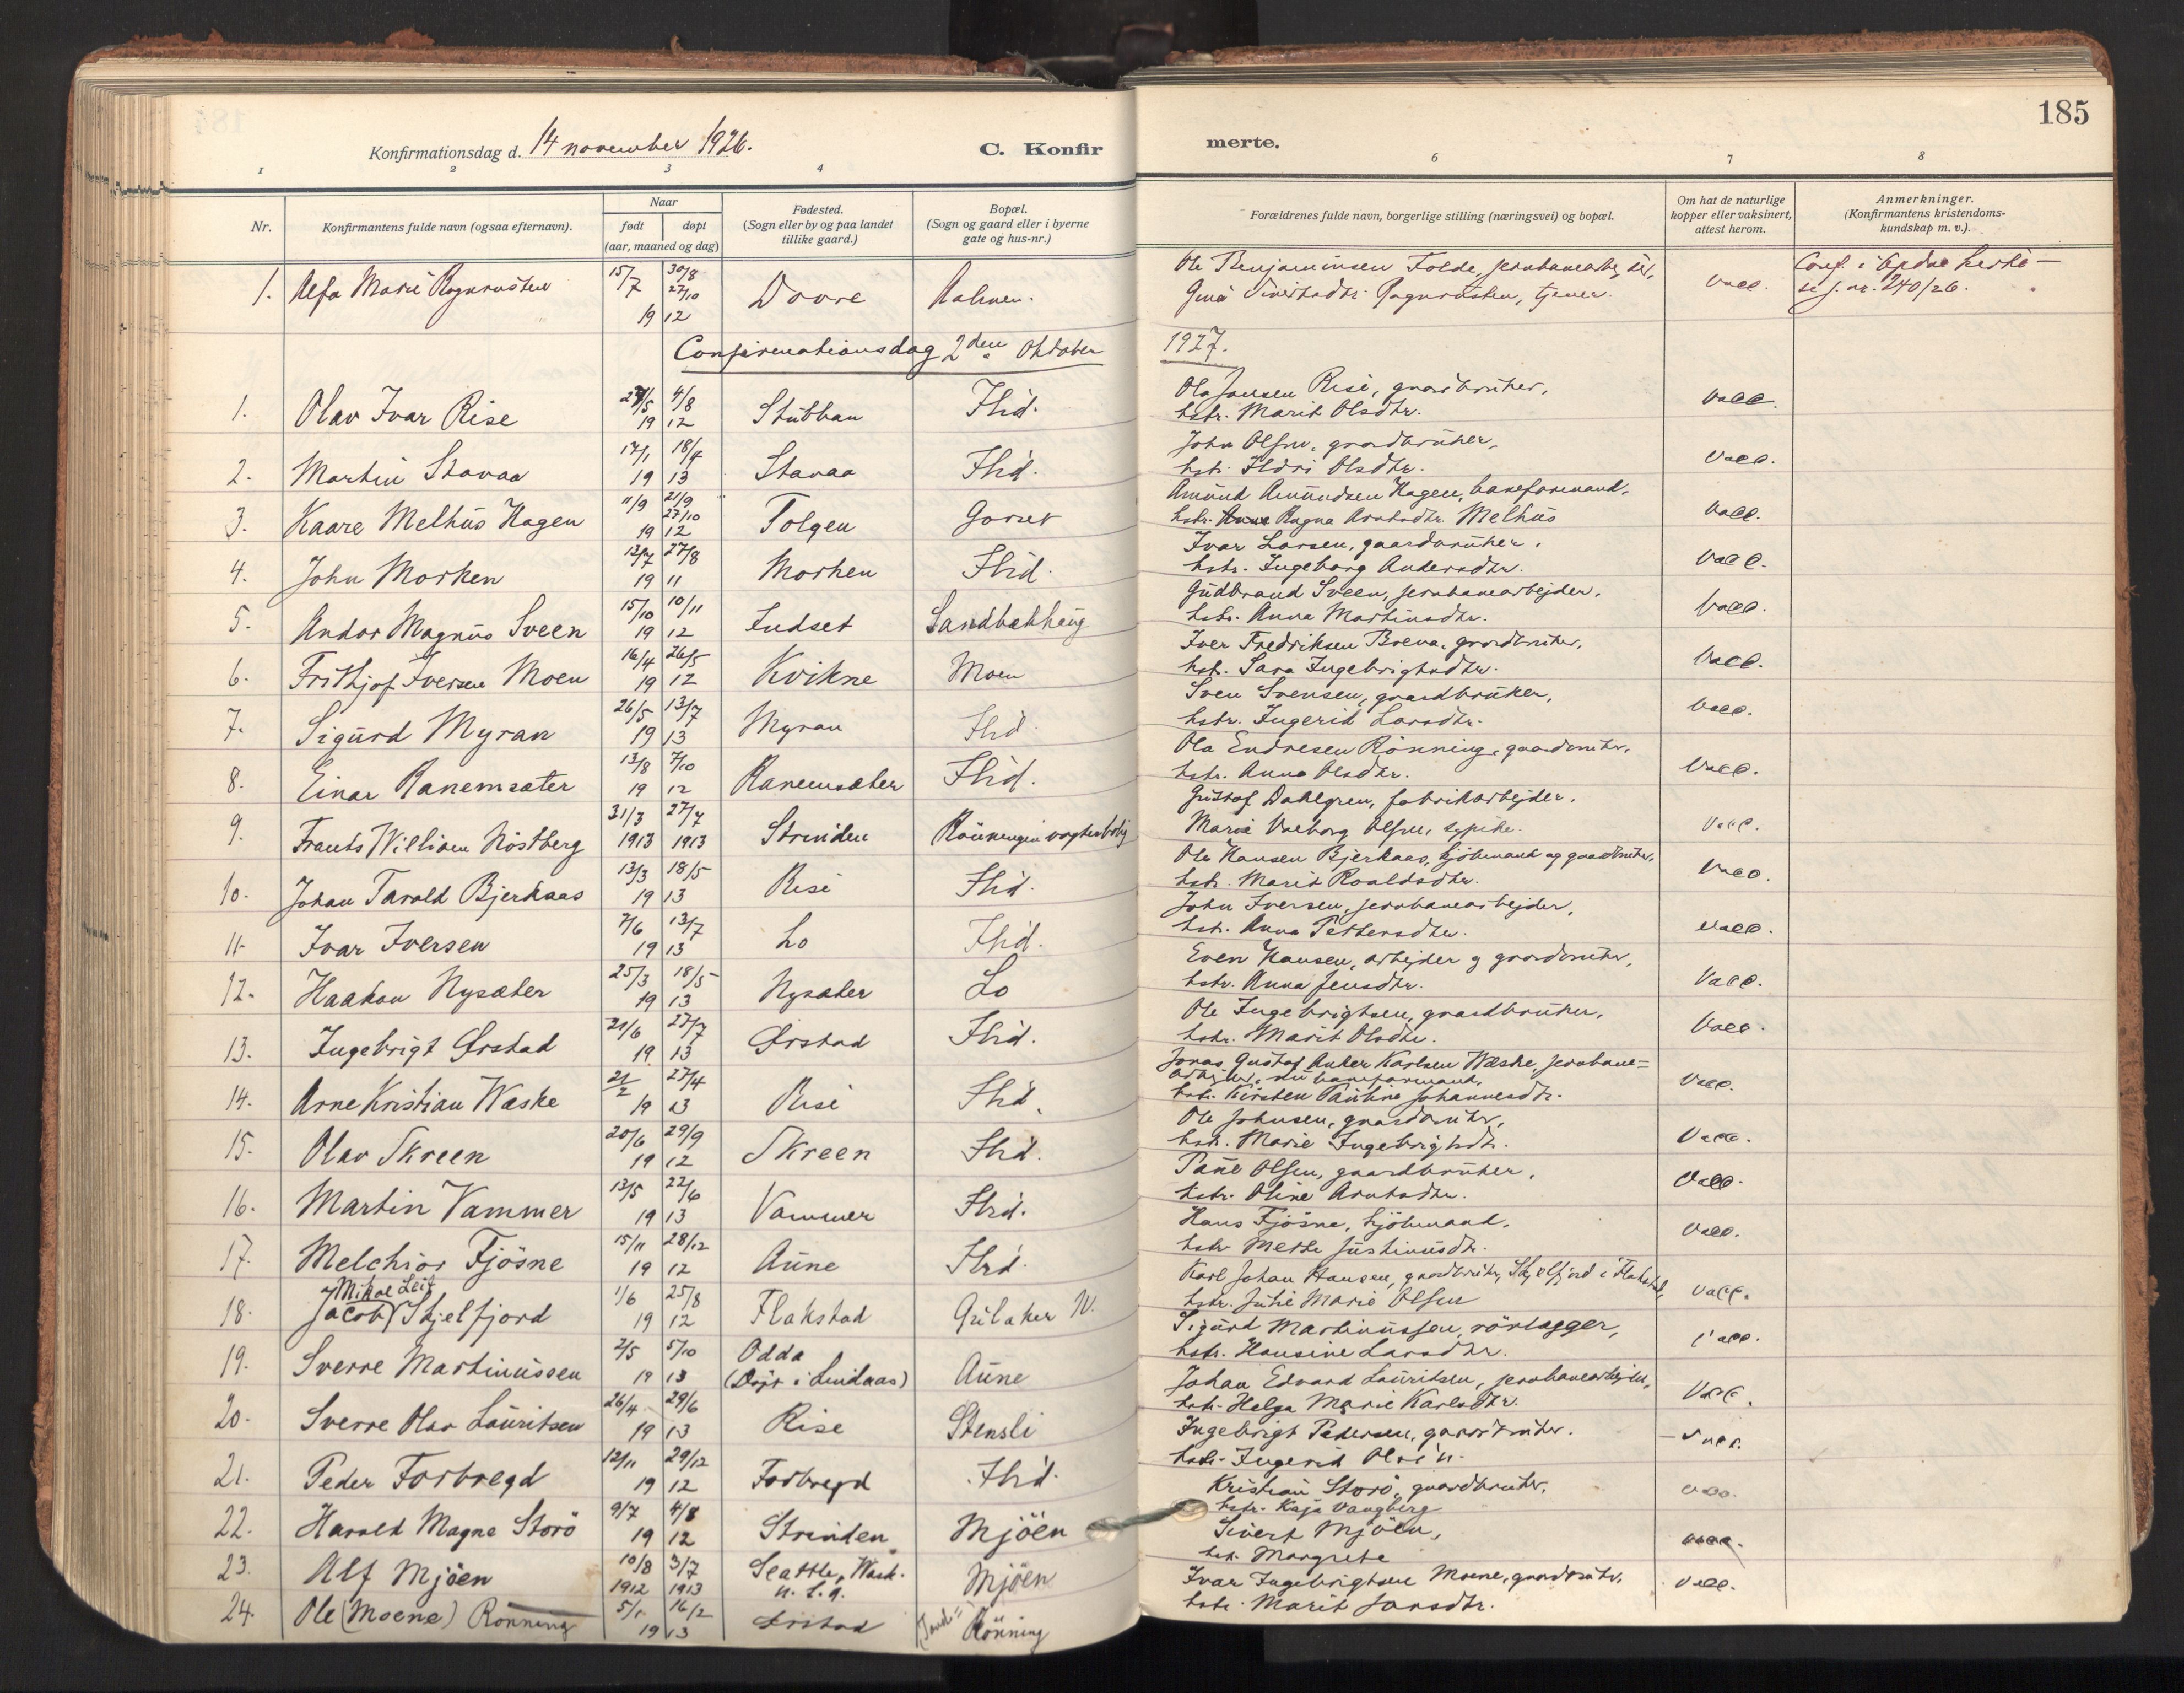 185
Konfirmationsdag d. 14 november 1926.
C. Konfir
merte.
1 2 3 4 6 7 8
Nr.
Konfirmantens fulde navn (ogsaa efternavn).
Naar
født døpt
(aar, maaned og dag)
Fødested.
(Sogn eller by og paa landet
tillike gaard.)
Bopæl.
(Sogn og gaard eller i byerne
gate og hus-nr.)
Forældrenes fulde navn, borgerlige stilling (næringsvei) og bopæl.
Om hat de naturlige
kopper eller vaksinert,
attest herom.
Anmerkninger.
(Konfirmantens kristendoms-
kundskap m. v.).
1. Alfa Marie 15/7 30/8 27/10 19 12 Dovre Aalmen. Ole Benjaminsen Folde, vacc. Conf. i
tjener. nr. 240/26.
Confirmationsdag 2den Oktober 1927.
1. Olav Ivar Rise 4/8 19 12 Stubban Ibid. Ola Jonsen Rise, gaardbruker, vacc.
hstr. Marit Olsdtr.
2. Martin Stavaa 17/1 18/4 19 13 Stavaa Ibid. John Olsen, gaardbruker, vacc.
hstr. Ildri Olsdtr.
3. Kaare Melhus Hagen 11/9 21/9 27/10 19 12 Tolgen Gorset Amund Amundsen Hagen, baneformand, vacc.
hstr. Ragna Melhus
4. John Morken 27/8 19 11 Morken Ibid. Ivar Larsen, gaardbruker, vacc.
hstr. Ingeborg Andersdtr.
5. Andor Magnus Sveen 15/10 10/11 19 12 Indset Sandbækhaug Gudbrand Sveen, jernbanearbejder, vacc.
hstr. Anna Martinsdtr.
6. Frithjof Iversen Moen 16/4 26/5 19 12 Kvikne Moen Iver Fredriksen gaardbruker, vacc.
hstr. Sara Ingebrigtsdtr.
7. Sigurd Myran 26/5 13/7 19 13 Myran Ibid. Sven Svensen, gaardbruker, vacc.
hstr. Ingerid Larsdtr.
8. Einar Ranemsæter 13/8 7/10 19 12 Ranemsæter Ibid. Ola Endresen Rönning, gaardbruker, vacc.
hstr. Anna Olsdtr.
9. Frants William Köstberg 31/3 27/7 1913 1913 Strinden vogterbolig Gustaf Dahlgren, fabrikarbejder, vacc.
Marie Valborg Olsen,
10. Johan Tarald Bjerkaas 13/3 18/5 19 13 Rise Ibid. Ole Hansen Bjerkaas, sjömand og gaardbruker, vacc.
hstr. Marit Roaldsdtr.
11. Ivar Iversen 7/6 13/7 19 13 Lo Ibid. John Iversen, jernbanearbejder, vacc.
hstr. Anna Pettersdtr.
12. Haakon Nysæter 25/3 18/5 19 13 Nysæter Lo Even Hansen, arbejder og gaardbruker, vacc.
hstr. Anna Jensdtr.
13. Ingebrigt Ørstad 21/6 27/7 19 13 Ørstad Ibid. Ole Ingebrigtsen, gaardbruker, vacc.
hstr. Marit Olsdtr.
14. Arne Kristian Wæske 21/2 27/4 19 13 Rise Ibid. Jonas Gustaf Anker Karlsen Wæske, jernbane-
arbejder, nu baneformand, vacc.
hstr. Kirsten Pauline Johannesdtr.
15. Olav Skreen 20/6 29/9 19 12 Skreen Ibid. Ole Johnsen, gaardbruker, vacc.
hstr. Marie Ingebrigtsdtr.
16. Martin Vammer 13/5 22/6 19 13 Vammer Ibid. Paul Olsen, gaardbruker, vacc.
hstr. Oline Arntsdtr.
17. Melchior Fjösne 15/11 28/12 19 12 Aune Ibid. Hans Fjösne, sjömand, vacc.
hstr. Mette Justinusdtr.
Mikal Leif
18. Jacob Skjelfjord 1/6 25/8 19 12 Flakstad Gulaker N. Karl Johan Hansen, gaardbruker, Skjelfjord i Flakstad, vacc.
hstr. Julie Marie Olsen
19. Sverre Martinussen 2/5 5/10 19 13 Odda (Døpt i Lindaas) Aune Sigurd Martinussen, rörlægger, vacc.
hstr. Hansine Larsdtr.
20. Sverre Olav Lauritsen 26/4 29/6 19 13 Rise Stensli Johan Edvard Lauritsen, jernbanearbejder, vacc.
hstr. Helga Marie Karlsdtr.
21. Peder Forbregd 12/11 29/12 19 12 Forbregd Ibid. Ingebrigt Pedersen, gaardbruker. vacc.
hstr. Ingerid
22. Harald Magne Storö 9/7 4/8 19 12 Strinden Mjöen Kristian Storö, gaardbruker, vacc.
hstr. Kaja Vangberg
23. Alf Mjöen 10/8 3/7 1912 1913 Seattle, Wash. Mjöen Sivert Mjöen,
hstr. Margrete
24. Ole (Moene) Rönning 16/2 19 13 Ørstad Rönning Ivar Ingebrigtsen Moene, gaardbruker, vacc.
hstr. Marit